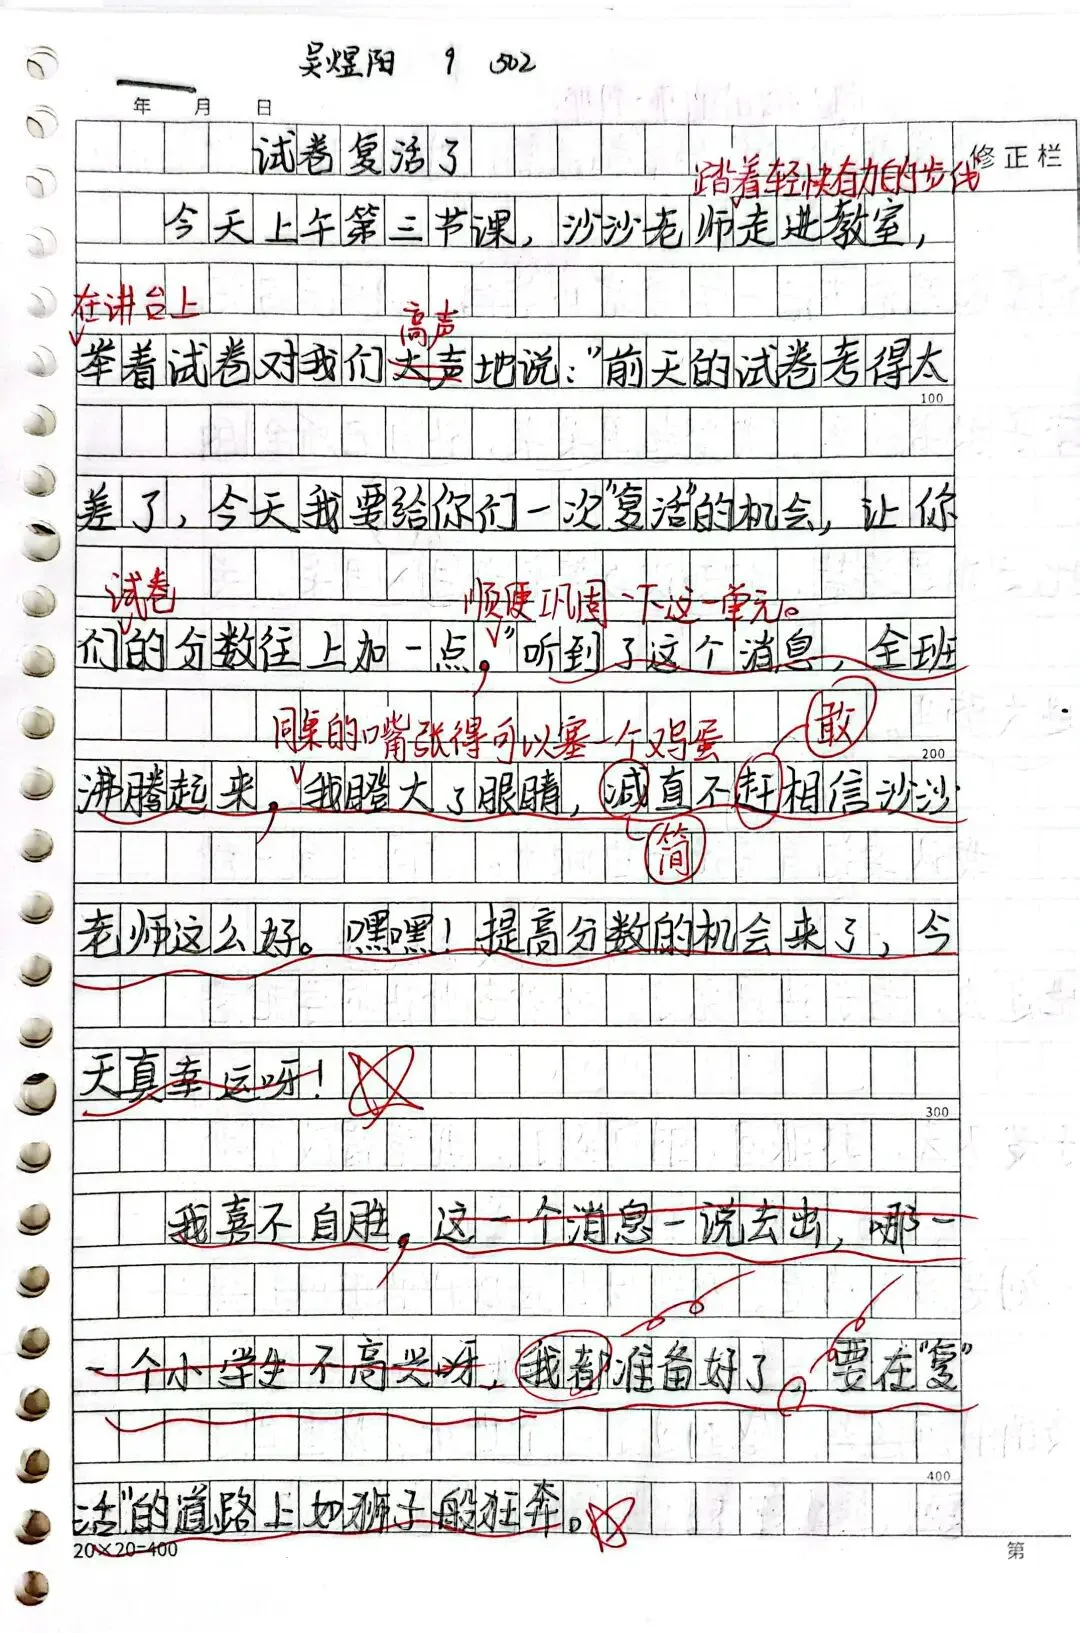 吴煜阳 9 502
年 月 日
试卷复活了
修正栏
踏着轻快有力的步伐
今天上午第三节课，沙沙老师走进教室，
在讲台上
高声
举着试卷对我们大声地说："前天的试卷考得太
100
差了，今天我要给你们一次"复活"的机会，让你
试卷
顺便巩固一下这一单元。
们的分数往上加一点，"听到了这个消息，全班
同桌的嘴张得可以塞一个鸡蛋
敢
200
沸腾起来，我瞪大了眼睛，减直不赶相信沙沙
简
老师这么好。嘿嘿！提高分数的机会来了，今
天真幸运呀！
300
我喜不自胜，这一个消息一说去出，哪一
一个小学生不高兴呀，我都准备好了，要在"复
400
活"的道路上如狮子般狂奔。
20×20=400
第